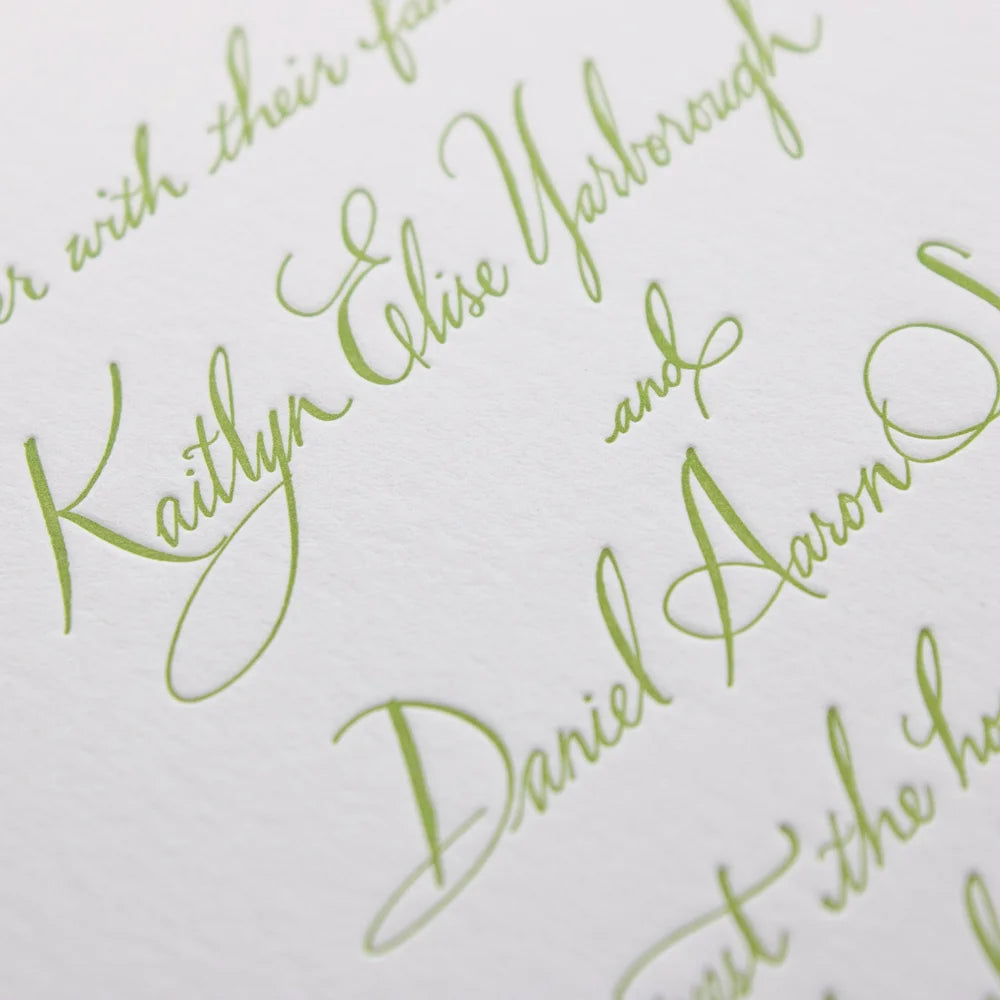 with their
Kaitlyn Elise Yarborough
and
Daniel Aaron
the